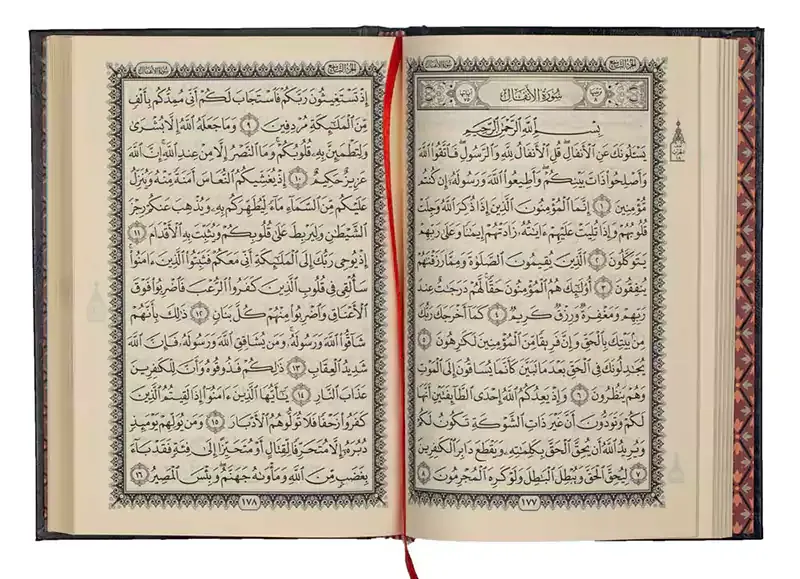 سُورَةُ الأَنفَالِ
الجزء التاسع
سُورَةُ الأَنفَالِ
بِسْمِ اللَّهِ الرَّحْمَٰنِ الرَّحِيمِ
يَسْـَٔلُونَكَ عَنِ ٱلْأَنفَالِ قُلِ ٱلْأَنفَالُ لِلَّهِ وَٱلرَّسُولِ فَٱتَّقُوا۟ ٱللَّهَ
وَأَصْلِحُوا۟ ذَاتَ بَيْنِكُمْ وَأَطِيعُوا۟ ٱللَّهَ وَرَسُولَهُۥٓ إِن كُنتُم
مُّؤْمِنِينَ ١ إِنَّمَا ٱلْمُؤْمِنُونَ ٱلَّذِينَ إِذَا ذُكِرَ ٱللَّهُ وَجِلَتْ
قُلُوبُهُمْ وَإِذَا تُلِيَتْ عَلَيْهِمْ ءَايَٰتُهُۥ زَادَتْهُمْ إِيمَٰنًا وَعَلَىٰ رَبِّهِمْ
يَتَوَكَّلُونَ ٢ ٱلَّذِينَ يُقِيمُونَ ٱلصَّلَوٰةَ وَمِمَّا رَزَقْنَٰهُمْ
يُنفِقُونَ ٣ أُو۟لَٰٓئِكَ هُمُ ٱلْمُؤْمِنُونَ حَقًّا لَّهُمْ دَرَجَٰتٌ عِندَ
رَبِّهِمْ وَمَغْفِرَةٌ وَرِزْقٌ كَرِيمٌ ٤ كَمَآ أَخْرَجَكَ رَبُّكَ
مِنۢ بَيْتِكَ بِٱلْحَقِّ وَإِنَّ فَرِيقًا مِّنَ ٱلْمُؤْمِنِينَ لَكَٰرِهُونَ ٥
يُجَٰدِلُونَكَ فِى ٱلْحَقِّ بَعْدَ مَا تَبَيَّنَ كَأَنَّمَا يُسَاقُونَ إِلَى ٱلْمَوْتِ
وَهُمْ يَنظُرُونَ ٦ وَإِذْ يَعِدُكُمُ ٱللَّهُ إِحْدَى ٱلطَّآئِفَتَيْنِ أَنَّهَا
لَكُمْ وَتَوَدُّونَ أَنَّ غَيْرَ ذَاتِ ٱلشَّوْكَةِ تَكُونُ لَكُمْ
وَيُرِيدُ ٱللَّهُ أَن يُحِقَّ ٱلْحَقَّ بِكَلِمَٰتِهِۦ وَيَقْطَعَ دَابِرَ ٱلْكَٰفِرِينَ
٧ لِيُحِقَّ ٱلْحَقَّ وَيُبْطِلَ ٱلْبَٰطِلَ وَلَوْ كَرِهَ ٱلْمُجْرِمُونَ ٨
١٧٧
الجزء التاسع
سُورَةُ الأَنفَالِ
إِذْ تَسْتَغِيثُونَ رَبَّكُمْ فَٱسْتَجَابَ لَكُمْ أَنِّى مُمِدُّكُم بِأَلْفٍ
مِّنَ ٱلْمَلَٰٓئِكَةِ مُرْدِفِينَ ٩ وَمَا جَعَلَهُ ٱللَّهُ إِلَّا بُشْرَىٰ
وَلِتَطْمَئِنَّ بِهِۦ قُلُوبُكُمْ وَمَا ٱلنَّصْرُ إِلَّا مِنْ عِندِ ٱللَّهِ إِنَّ ٱللَّهَ
عَزِيزٌ حَكِيمٌ ١٠ إِذْ يُغَشِّيكُمُ ٱلنُّعَاسَ أَمَنَةً مِّنْهُ وَيُنَزِّلُ
عَلَيْكُم مِّنَ ٱلسَّمَآءِ مَآءً لِّيُطَهِّرَكُم بِهِۦ وَيُذْهِبَ عَنكُمْ رِجْزَ
ٱلشَّيْطَٰنِ وَلِيَرْبِطَ عَلَىٰ قُلُوبِكُمْ وَيُثَبِّتَ بِهِ ٱلْأَقْدَامَ ١١
إِذْ يُوحِى رَبُّكَ إِلَى ٱلْمَلَٰٓئِكَةِ أَنِّى مَعَكُمْ فَثَبِّتُوا۟ ٱلَّذِينَ ءَامَنُوا۟
سَأُلْقِى فِى قُلُوبِ ٱلَّذِينَ كَفَرُوا۟ ٱلرُّعْبَ فَٱضْرِبُوا۟ فَوْقَ
ٱلْأَعْنَاقِ وَٱضْرِبُوا۟ مِنْهُمْ كُلَّ بَنَانٍ ١٢ ذَٰلِكَ بِأَنَّهُمْ
شَآقُّوا۟ ٱللَّهَ وَرَسُولَهُۥ وَمَن يُشَاقِقِ ٱللَّهَ وَرَسُولَهُۥ فَإِنَّ ٱللَّهَ
شَدِيدُ ٱلْعِقَابِ ١٣ ذَٰلِكُمْ فَذُوقُوهُ وَأَنَّ لِلْكَٰفِرِينَ
عَذَابَ ٱلنَّارِ ١٤ يَٰٓأَيُّهَا ٱلَّذِينَ ءَامَنُوٓا۟ إِذَا لَقِيتُمُ ٱلَّذِينَ
كَفَرُوا۟ زَحْفًا فَلَا تُوَلُّوهُمُ ٱلْأَدْبَارَ ١٥ وَمَن يُوَلِّهِمْ يَوْمَئِذٍ
دُبُرَهُۥٓ إِلَّا مُتَحَرِّفًا لِّقِتَالٍ أَوْ مُتَحَيِّزًا إِلَىٰ فِئَةٍ فَقَدْ بَآءَ
بِغَضَبٍ مِّنَ ٱللَّهِ وَمَأْوَىٰهُ جَهَنَّمُ وَبِئْسَ ٱلْمَصِيرُ ١٦
١٧٨